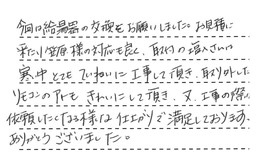 今回給湯器の交換をお願いしました。お見積に
来たり笠原様の対応も良く、取付の職人さんは
寒中とてもていねいに工事して頂き、取り外した
リモコンのアトもきれいにして頂き、又、工事の際、
依頼したくなる様な仕上がりで満足しております。
ありがとうございました。